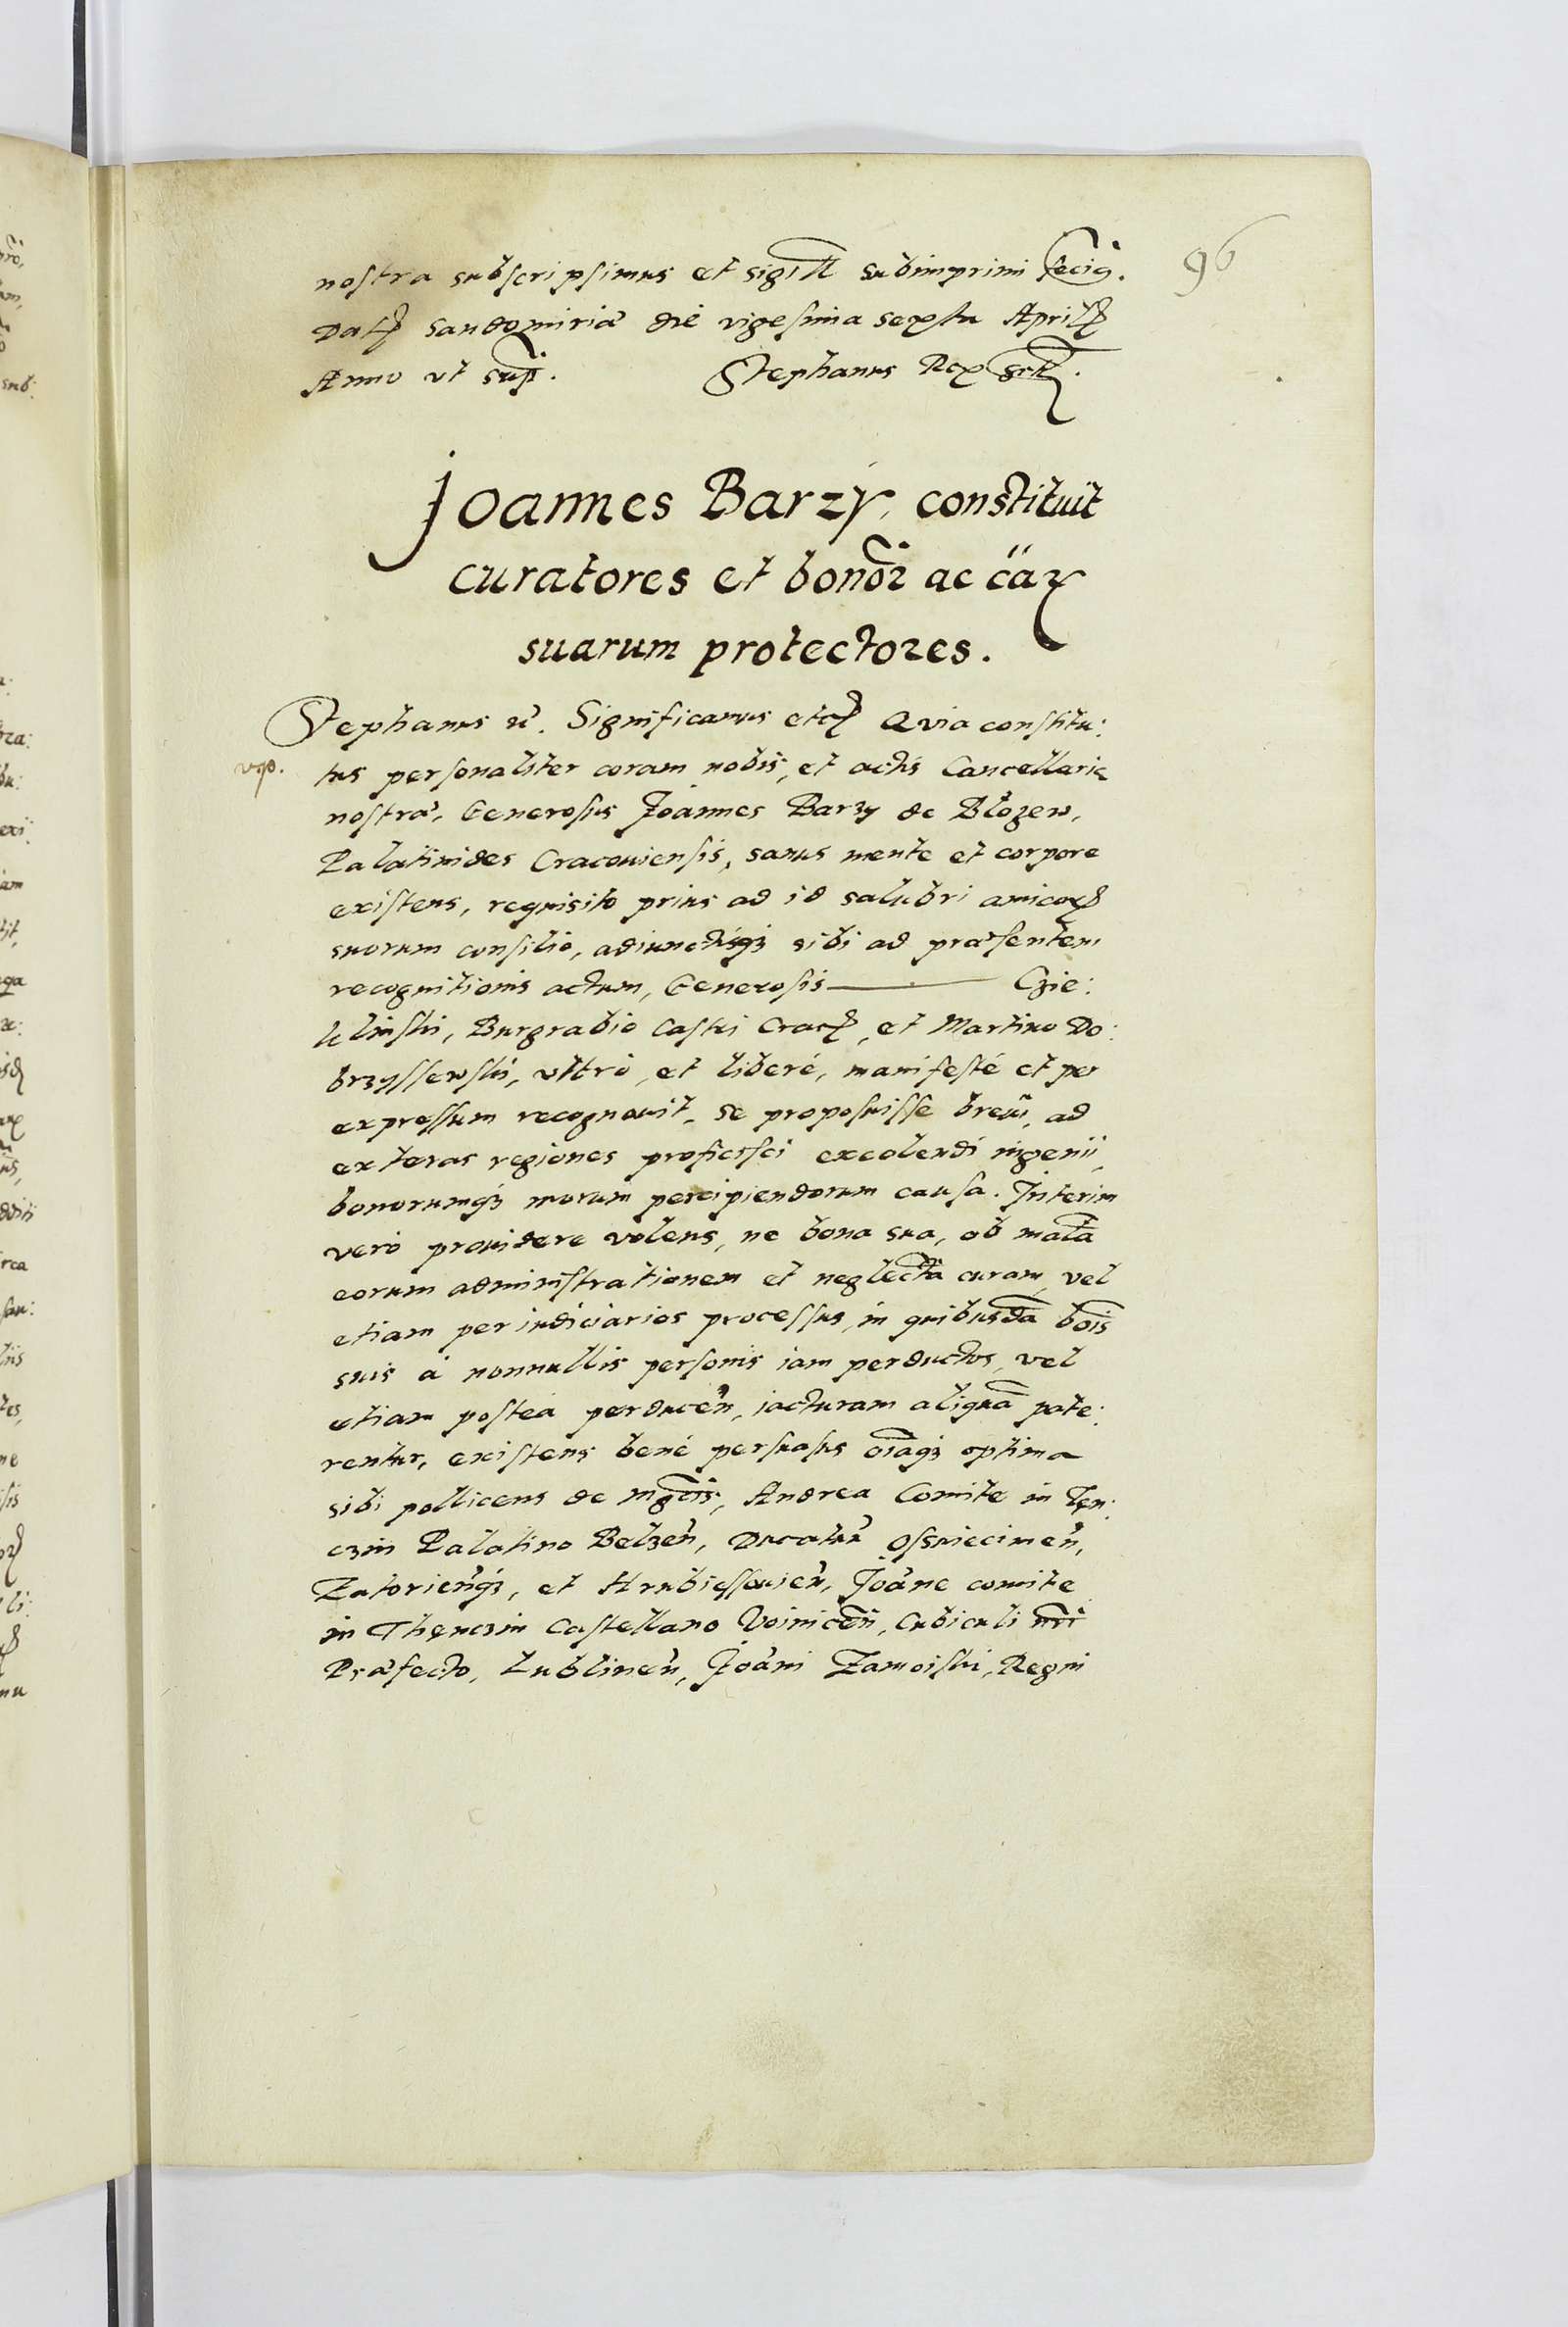 96
nostra subscripsimus et sigill subimprimi fecim9.
Dat Sandomiriæ die vigesima sexta April
Anno ut sup. Stephanus Rex sct.
Joannes Barzÿ, constituit
curatores et bonor ac cãr
suarum protectores.
Stephanus ec. Significamus etc Quia constitu:
tus personaliter coram nobis, et actis Cancellariæ
nostræ, Generosus Joannes Barzy de Blozew,
Palatinides Cracouiensis, sanus mente et corpore
existens, requisito prius ad id salubri amicor
suorum consilio, adiunctisq3 sibi ad præsentem
recognitionis actum, Generosis —— Czie:
klinski, Burgrabio Castri Crac, et Martino Do:
brzyssewski, ultrò, et liberé, manifesté et per
expressum recognouit, se proposuisse breui, ad
exteras regiones proficisci excolendi ingenii,
bonorumq3 morum percipiendorum causa. Interim
verò prouidere volens, ne bona sua, ob malã
eorum administrationem et neglectã curam, vel
etiam per iudiciarios processus, in quibusdã bois
suis à nonnullis personis iam perductos, vel
etiam posteà perducen, iacturam aliquã pate:
rentur, existens bené persuasus oiaq3 optima
sibi pollicens de Mgcis, Andrea Comite in Ten:
czin Palatino Belzen, Ducatuu Osswiecimen,
Zatorienq3, et Hrubiessouien, Joãne comite
in Thenczin Castellano Voinicen, Cubiculi nri
Præfecto, Lublinen, Joãni Zamoiski, Regni